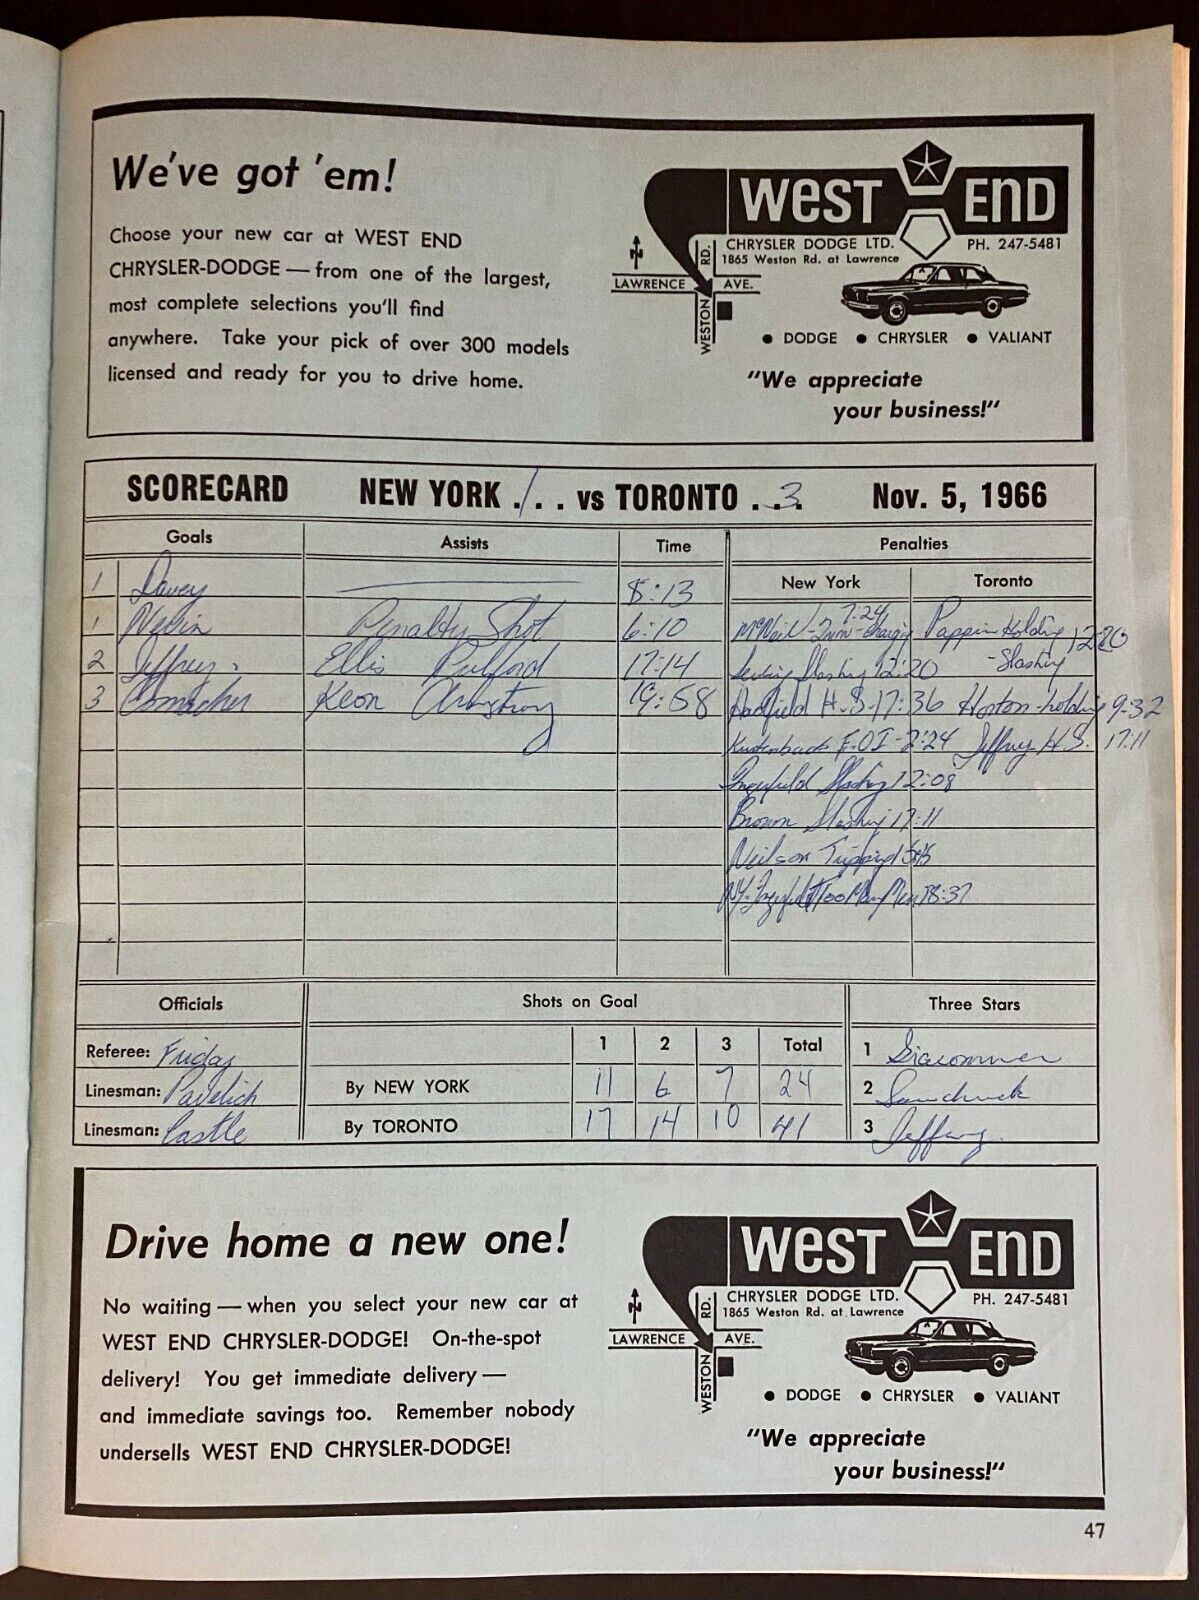 We've got 'em!
Choose your new car at WEST END
CHRYSLER-DODGE — from one of the largest,
most complete selections you'll find
anywhere. Take your pick of over 300 models
licensed and ready for you to drive home.
WEST END
CHRYSLER DODGE LTD. PH. 247-5481
1865 Weston Rd. at Lawrence
N
RD.
LAWRENCE AVE.
WESTON
● DODGE ● CHRYSLER ● VALIANT
"We appreciate
your business!"
SCORECARD NEW YORK . 1 . . vs TORONTO . . 3 . Nov. 5, 1966
Goals Assists Time Penalties
New York Toronto
1 Davey 8:13
1 Nevin Penalty Shot 6:10 McNeil - 7:24 - Charging Pappin Holding 12:20
2 Jeffrey Ellis Pulford 17:14 Seiling Slashing 12:20 - Slashing
3 Conacher Keon Armstrong 19:58 Hadfield H.S. 17:36 Horton - holding 9:32
F.O.I - 2:24 Jeffrey H.S. 17:11
Slashing 12:08
Brown Slashing 17:11
Neilson Tripping
N.Y. Too Many Men 18:37
Officials Shots on Goal Three Stars
1 2 3 Total
Referee: Friday 1 Giacommen
Linesman: Pavelich By NEW YORK 11 6 7 24 2 Sawchuck
Linesman: Castle By TORONTO 17 14 10 41 3 Jeffrey
Drive home a new one!
No waiting — when you select your new car at
WEST END CHRYSLER-DODGE! On-the-spot
delivery! You get immediate delivery —
and immediate savings too. Remember nobody
undersells WEST END CHRYSLER-DODGE!
WEST END
CHRYSLER DODGE LTD. PH. 247-5481
1865 Weston Rd. at Lawrence
N
RD.
LAWRENCE AVE.
WESTON
● DODGE ● CHRYSLER ● VALIANT
"We appreciate
your business!"
47